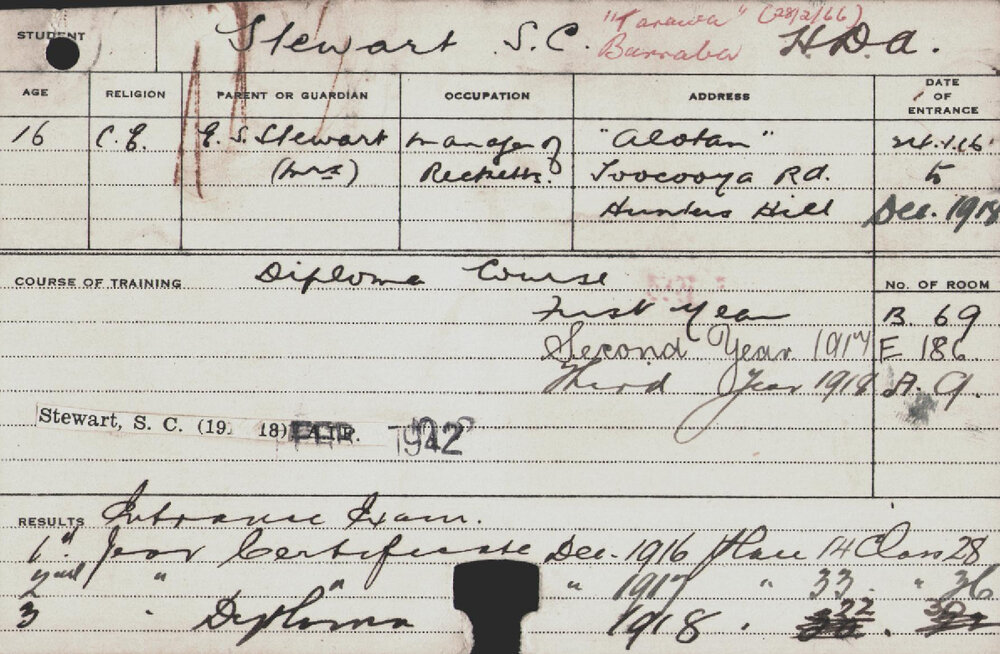 STUDENT Stewart S.C. "Tarawa" (28/2/66) H.D.A.
Barraba
AGE RELIGION PARENT OR GUARDIAN OCCUPATION ADDRESS DATE OF ENTRANCE
16 C.E. E. S. Stewart manager of "Alotan" 24.1.16
(Mrs) Recketts. Toocooya Rd. to
Hunters Hill Dec. 1918
COURSE OF TRAINING Diploma Course No. OF ROOM
First Year B. 69
Second Year 1917 E 186.
Third Year 1918 A. 9.
Stewart, S. C. (19 18) A.I.F. 1942
RESULTS Entrance Exam.
1st Year Certificate Dec. 1916 Place 14 Class 28
2nd " " " 1917 " 33 . " 36
3 " Diploma 1918 . 22